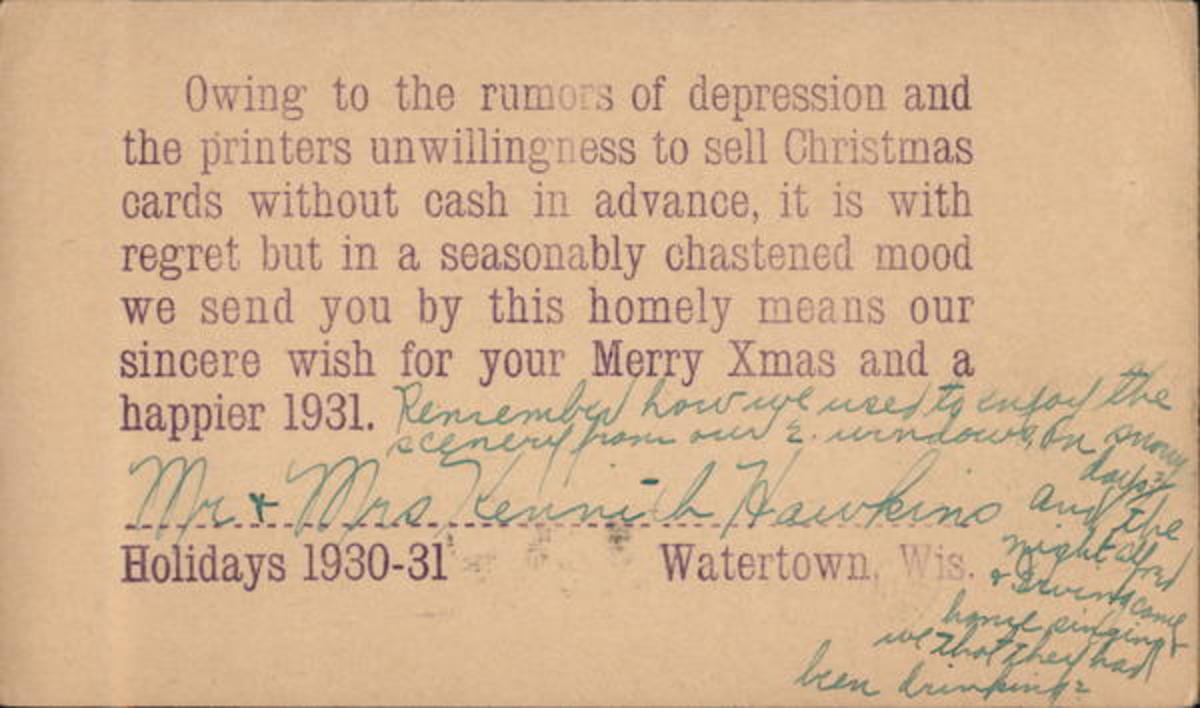 Owing to the rumors of depression and
the printers unwillingness to sell Christmas
cards without cash in advance, it is with
regret but in a seasonably chastened mood
we send you by this homely means our
sincere wish for your Merry Xmas and a
happier 1931. Remember how we used to enjoy the
scenery from our E. windows, on snowy
days?
Mr & Mrs Kennith Hawkins and the
Holidays 1930-31 Watertown, Wis. night Alfred
& Irving came
home singing &
we thot they had
been drinking?